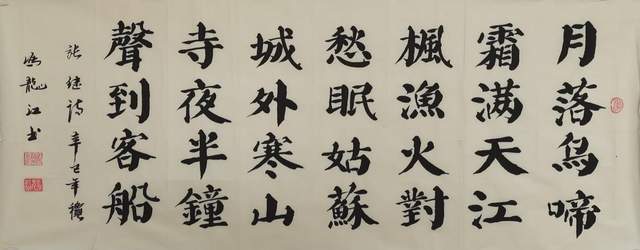 月落烏啼
霜满天江
楓漁火對
愁眠姑蘇
城外寒山
寺夜半鐘
聲到客船
張继诗辛巳年
龍江书